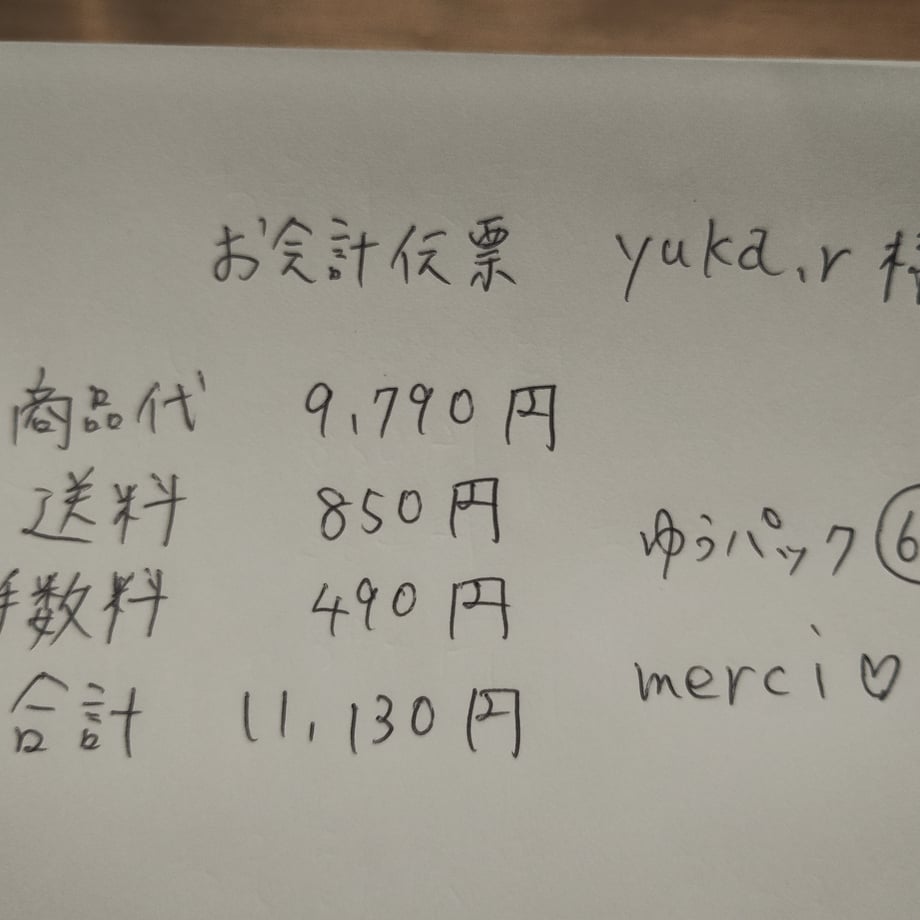 お会計伝票 yuka.r 様
商品代 9,790円
送料 850円
ゆうパック⑥
手数料 490円
merci♡
合計 11,130円